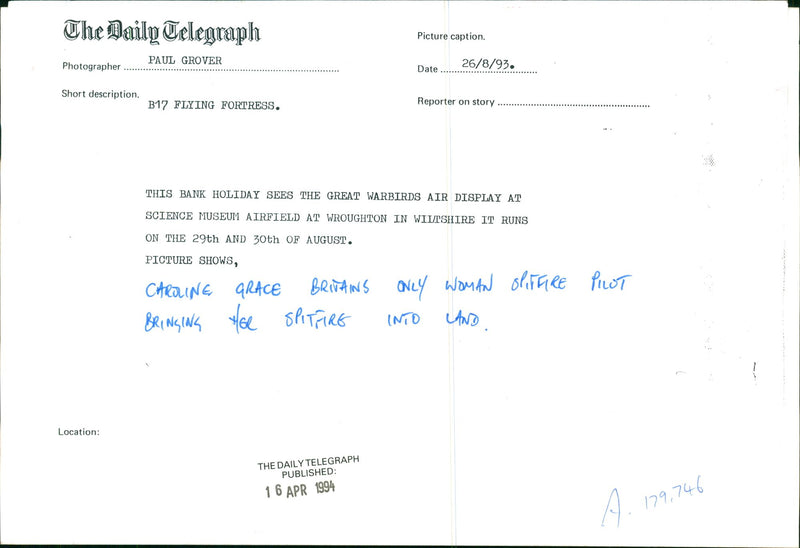 The Daily Telegraph
Picture caption.
Photographer PAUL GROVER
Date 26/8/93.
Short description.
B17 FLYING FORTRESS.
Reporter on story
THIS BANK HOLIDAY SEES THE GREAT WARBIRDS AIR DISPLAY AT
SCIENCE MUSEUM AIRFIELD AT WROUGHTON IN WILTSHIRE IT RUNS
ON THE 29th AND 30th OF AUGUST.
PICTURE SHOWS,
CAROLINE GRACE BRITAINS ONLY WOMAN SPITFIRE PILOT
BRINGING HER SPITFIRE INTO LAND.
Location:
THE DAILY TELEGRAPH
PUBLISHED:
16 APR 1994
A. 179,746